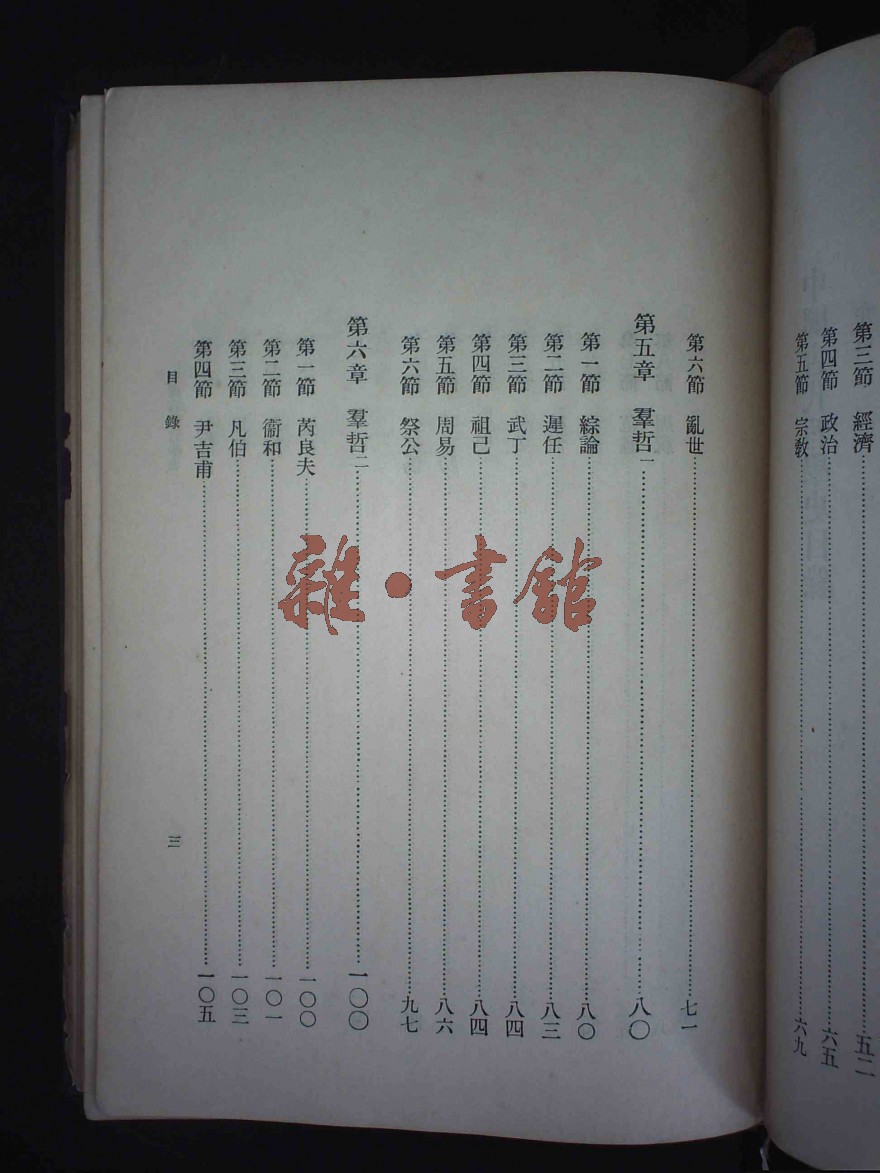 第三節　經濟………五二
第四節　政治………六五
第五節　宗教………六九
第六節　亂世………七一
第五章　羣哲一………八〇
第一節　綜論………八〇
第二節　遲任………八三
第三節　武丁………八四
第四節　祖己………八四
第五節　周易………八六
第六節　祭公………九七
第六章　羣哲二………一〇〇
第一節　芮良夫………一〇〇
第二節　衞和………一〇一
第三節　凡伯………一〇三
第四節　尹吉甫………一〇五
目錄
三
雜·書館